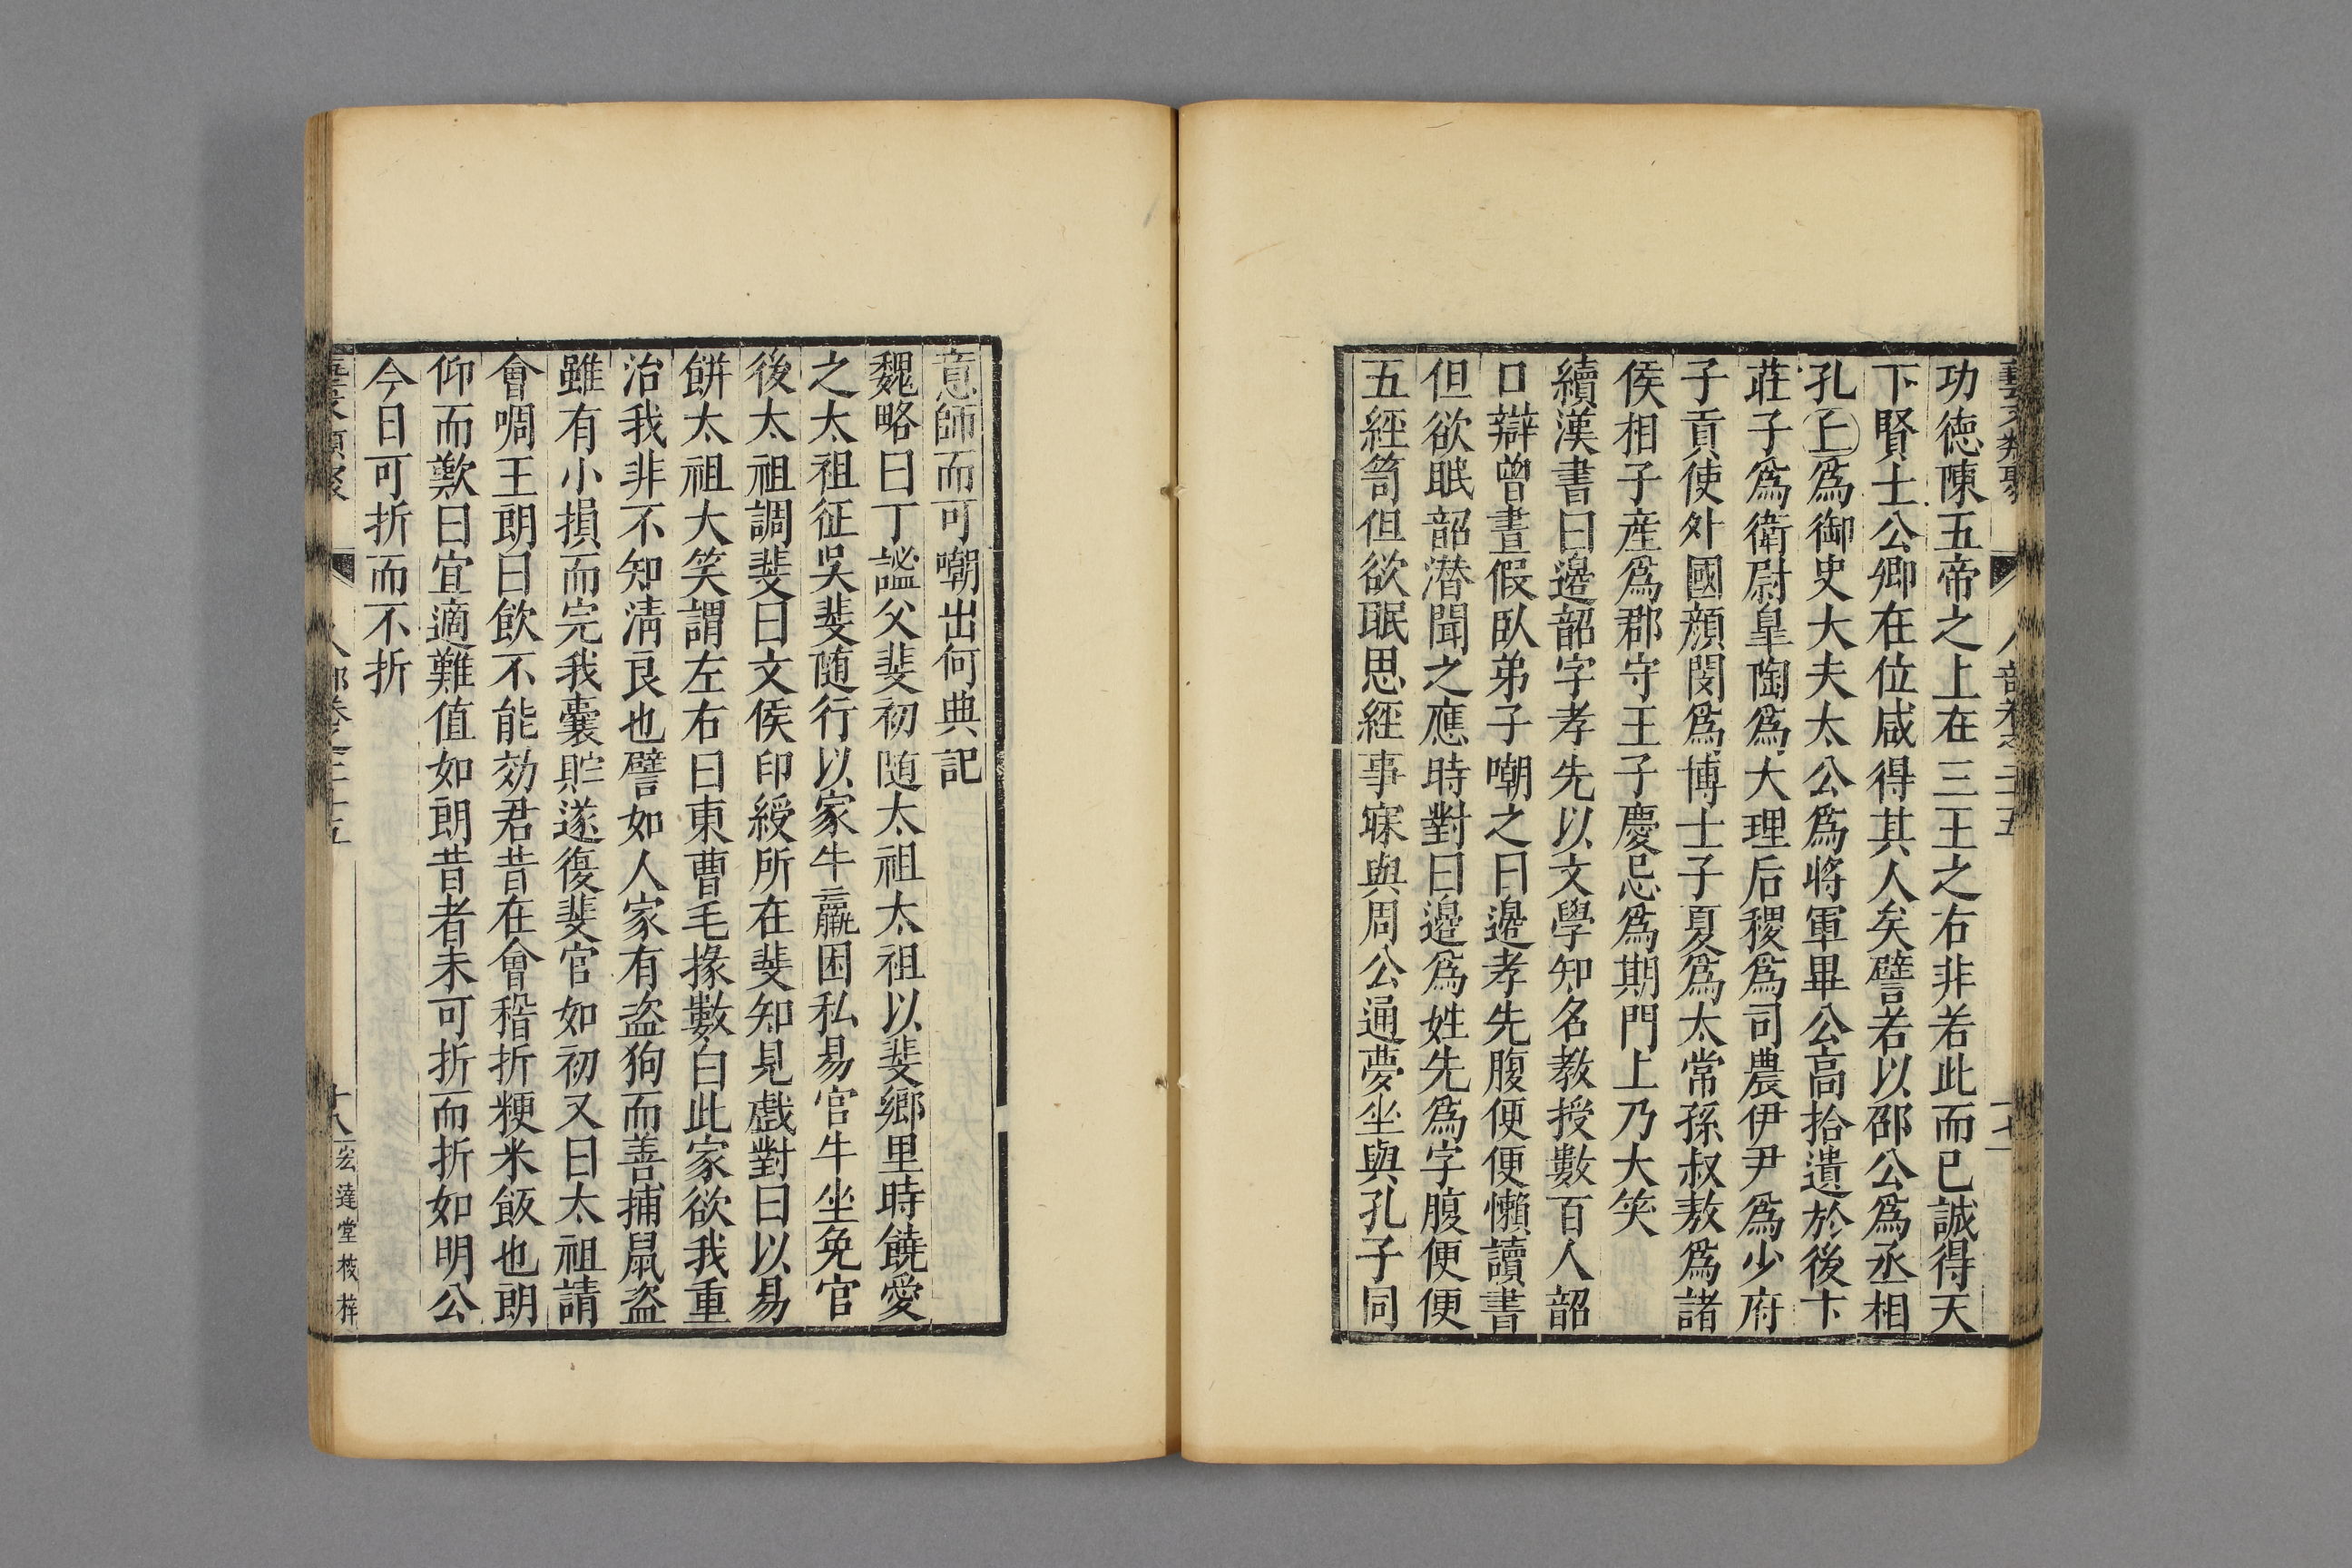 藝文類聚 人部卷之二十五 十七
功德陳五帝之上在三王之右非若此而已誠得天
下賢士公卿在位咸得其人矣譬若以邵公爲丞相
孔丘爲御史大夫太公爲將軍畢公高拾遺於後卞
莊子爲衛尉皐陶爲大理后稷爲司農伊尹爲少府
子貢使外國顏閔爲博士子夏爲太常孫叔敖爲諸
侯相子產爲郡守王子慶忌爲期門上乃大笑
續漢書曰邊韶字孝先以文學知名教授數百人韶
口辯曾晝假臥弟子嘲之曰邊孝先腹便便懶讀書
但欲眠韶潛聞之應時對曰邊爲姓先爲字腹便便
五經笥但欲眠思經事寐與周公通夢坐與孔子同
意師而可嘲出何典記
魏略曰丁謐父斐初随太祖太祖以斐鄉里時饒愛
之太祖征吳斐随行以家牛羸困私易官牛坐免官
後太祖調斐曰文侯印綬所在斐知見戲對曰以易
餅太祖大笑謂左右曰東曹毛掾數白此家欲我重
治我非不知清良也譬如人家有盜狗而善捕鼠盜
雖有小損而完我囊貯遂復斐官如初又曰太祖請
會啁王朗曰飲不能効君昔在會稽折粳米飯也朗
仰而歎曰宜適難值如朗昔者未可折而折如明公
今日可折而不折
藝文類聚 人部卷之二十五 十八 宏達堂校梓